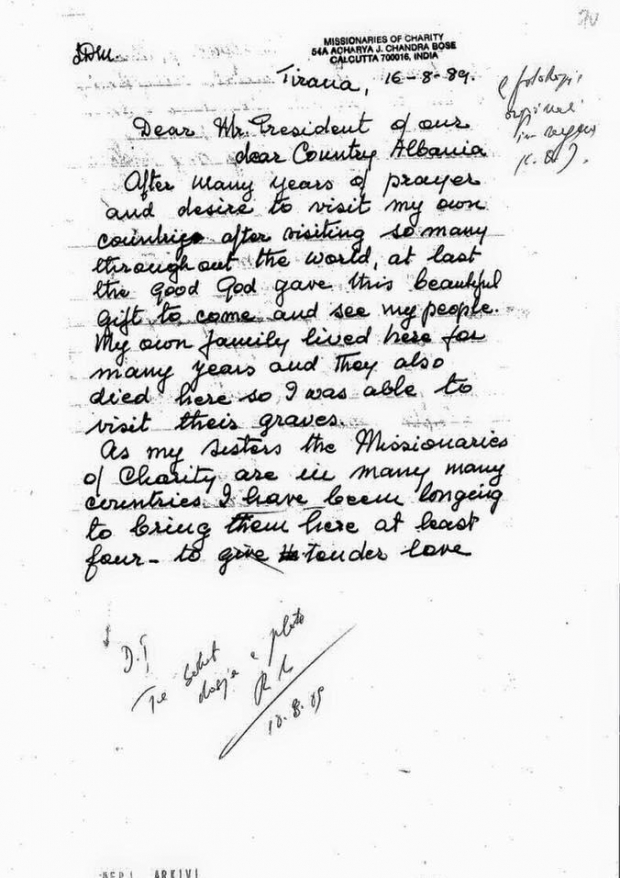 LDM.
MISSIONARIES OF CHARITY
54A ACHARYA J. CHANDRA BOSE
CALCUTTA 700016, INDIA
Tirana, 16-8-89.
Dear Mr. President of our
dear Country Albania
After many years of prayer
and desire to visit my own
country after visiting so many
throughout the world, at last
the good God gave this beautiful
gift to come and see my people.
My own family lived here for
many years and they also
died here so I was able to
visit their graves.
As my Sisters the Missionaries
of Charity are in many many
countries I have been longing
to bring them here at least
four - to give tender love
D.T
Te
dosja e plote
ARKIVI